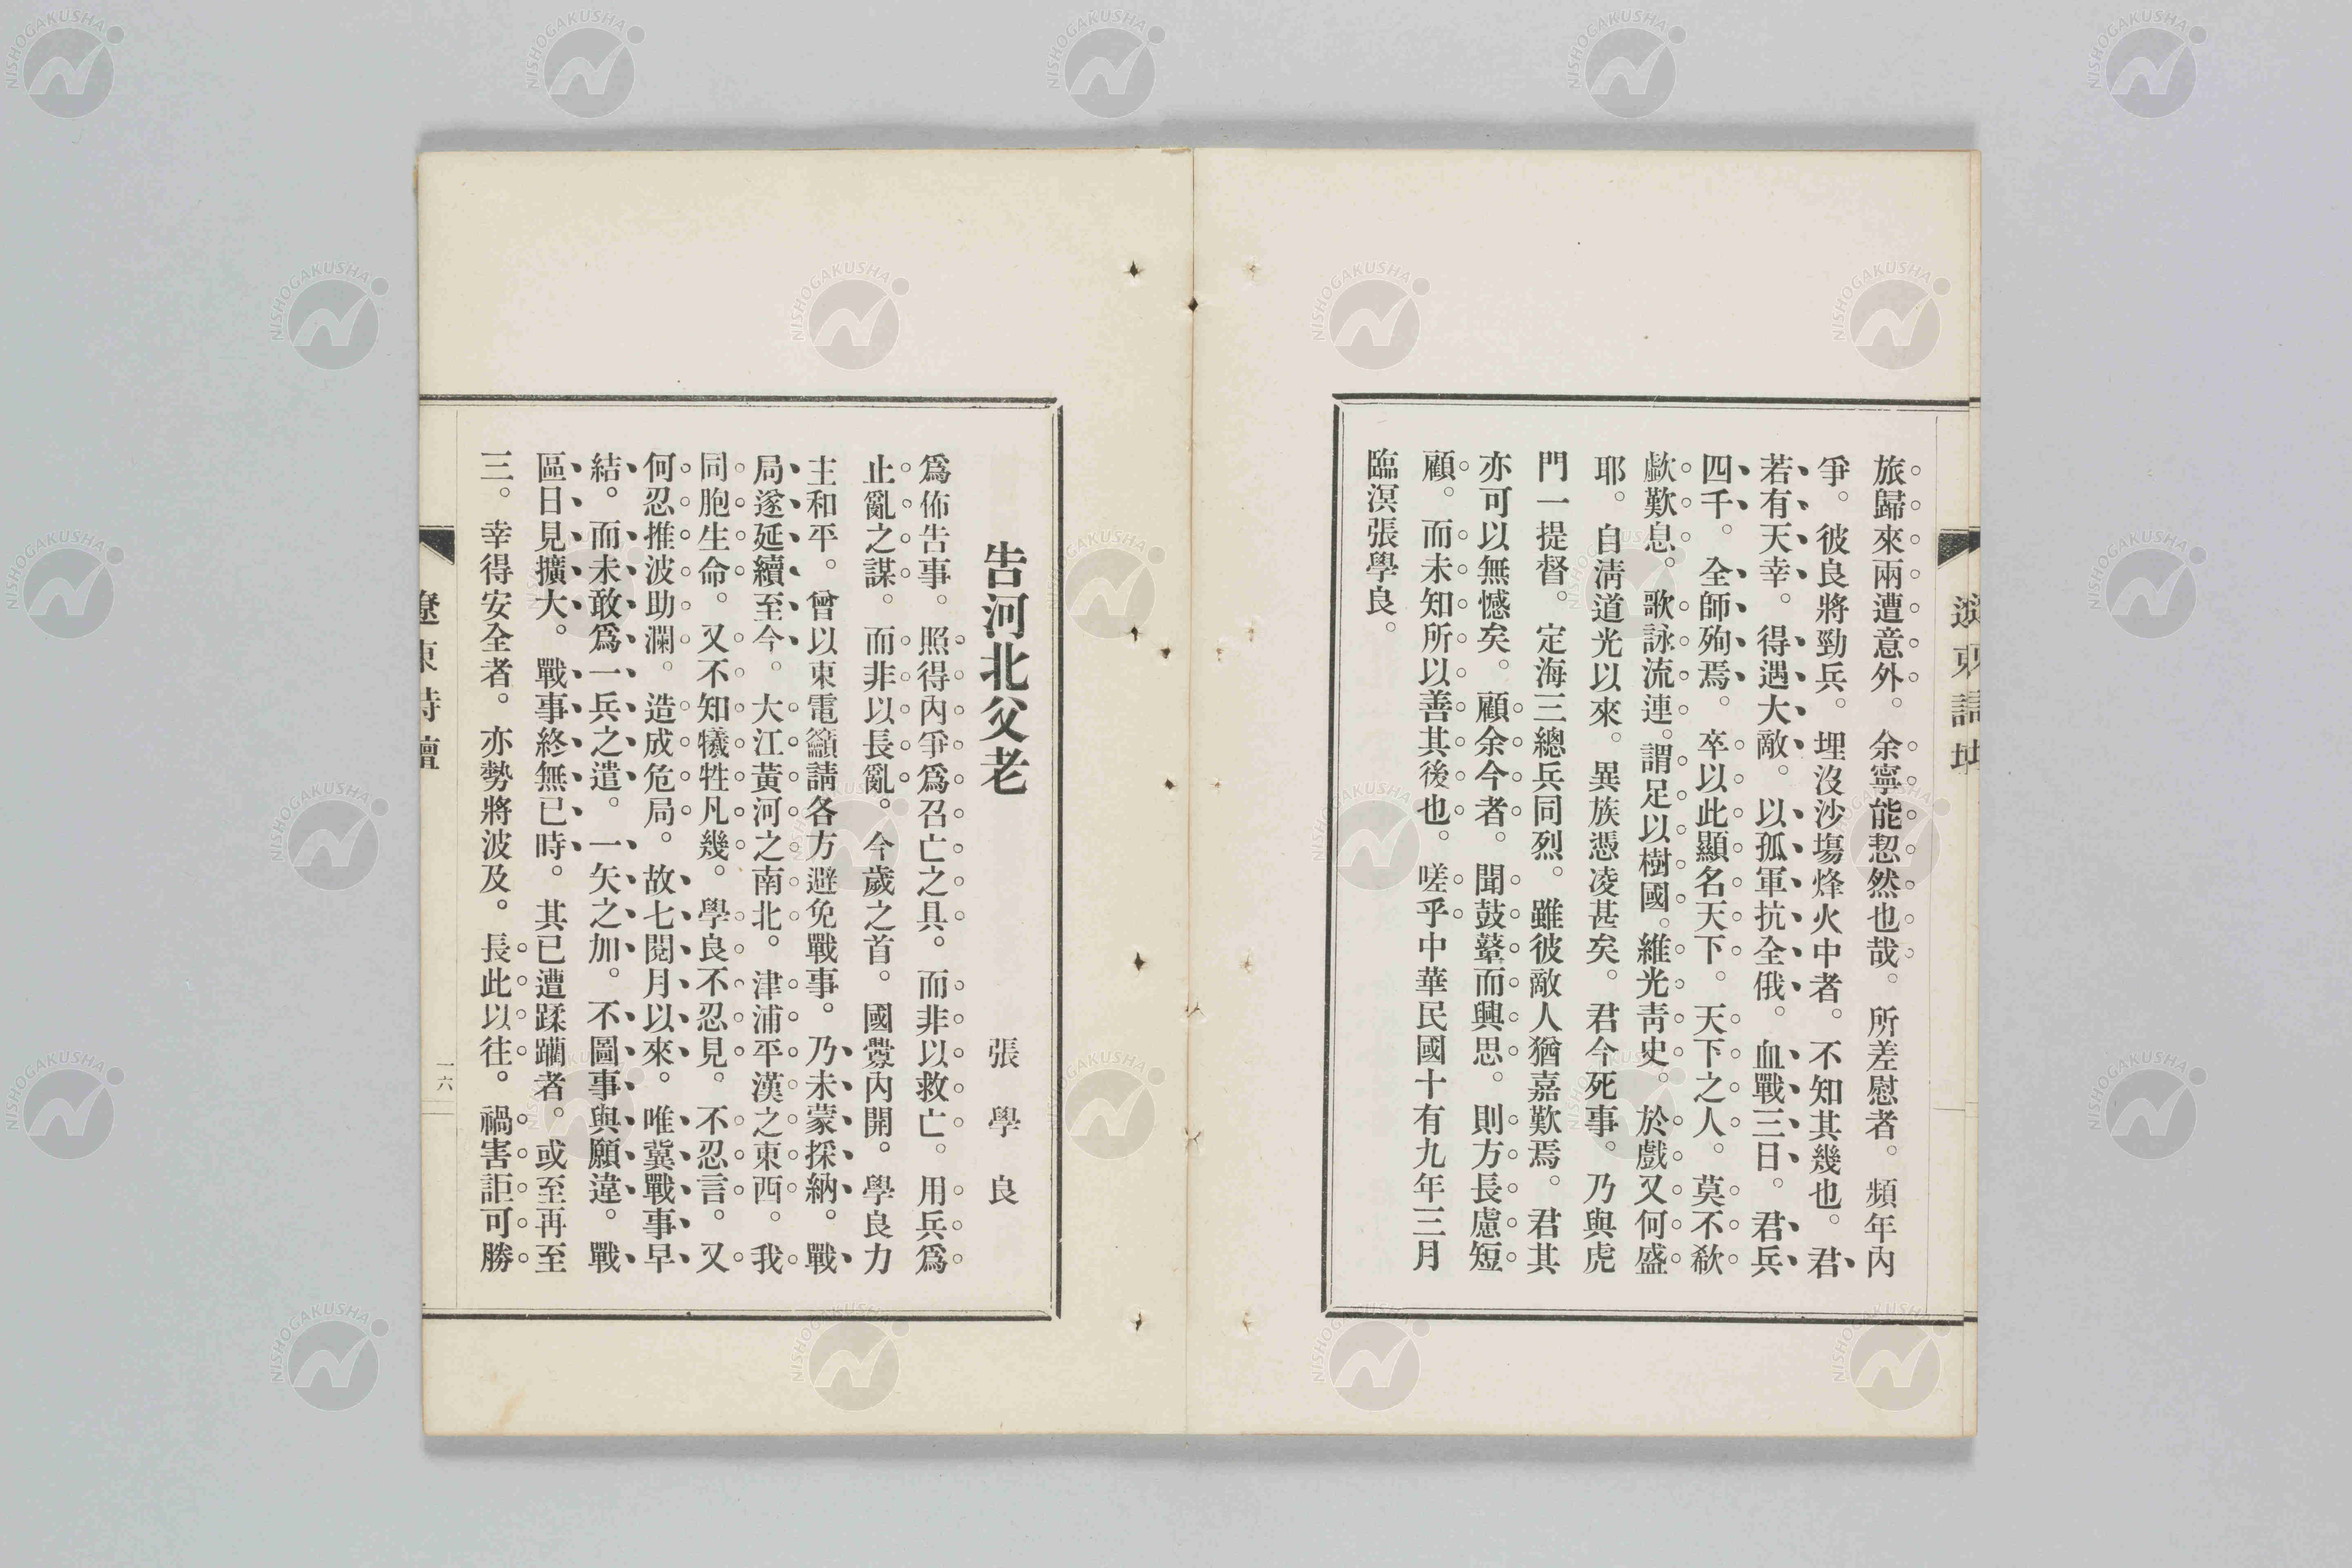 旅歸來兩遭意外。余寧能恝然也哉。所差慰者。頻年內
爭。彼良將勁兵。埋沒沙塲烽火中者。不知其幾也。君
若有天幸。得遇大敵。以孤軍抗全俄。血戰三日。君兵
四千。全師殉焉。卒以此顯名天下。天下之人。莫不欷
歔歎息。歌詠流連。謂足以樹國。維光靑史。於戲又何盛
耶。自淸道光以來。異族憑凌甚矣。君今死事。乃與虎
門一提督。定海三總兵同烈。雖彼敵人猶嘉歎焉。君其
亦可以無憾矣。顧余今者。聞鼓鼙而興思。則方長慮短
顧。而未知所以善其後也。嗟乎中華民國十有九年三月
臨溟張學良。
告河北父老
張學良
爲佈告事。照得內爭爲召亡之具。而非以救亡。用兵爲
止亂之謀。而非以長亂。今歲之首。國釁內開。學良力
主和平。曾以東電籲請各方避免戰事。乃未蒙採納。戰
局遂延續至今。大江黃河之南北。津浦平漢之東西。我
同胞生命。又不知犧牲凡幾。學良不忍見。不忍言。又
何忍推波助瀾。造成危局。故七閱月以來。唯冀戰事早
結。而未敢爲一兵之遣。一矢之加。不圖事與願違。戰
區日見擴大。戰事終無已時。其已遭蹂躪者。或至再至
三。幸得安全者。亦勢將波及。長此以往。禍害詎可勝
遼東詩壇
一六